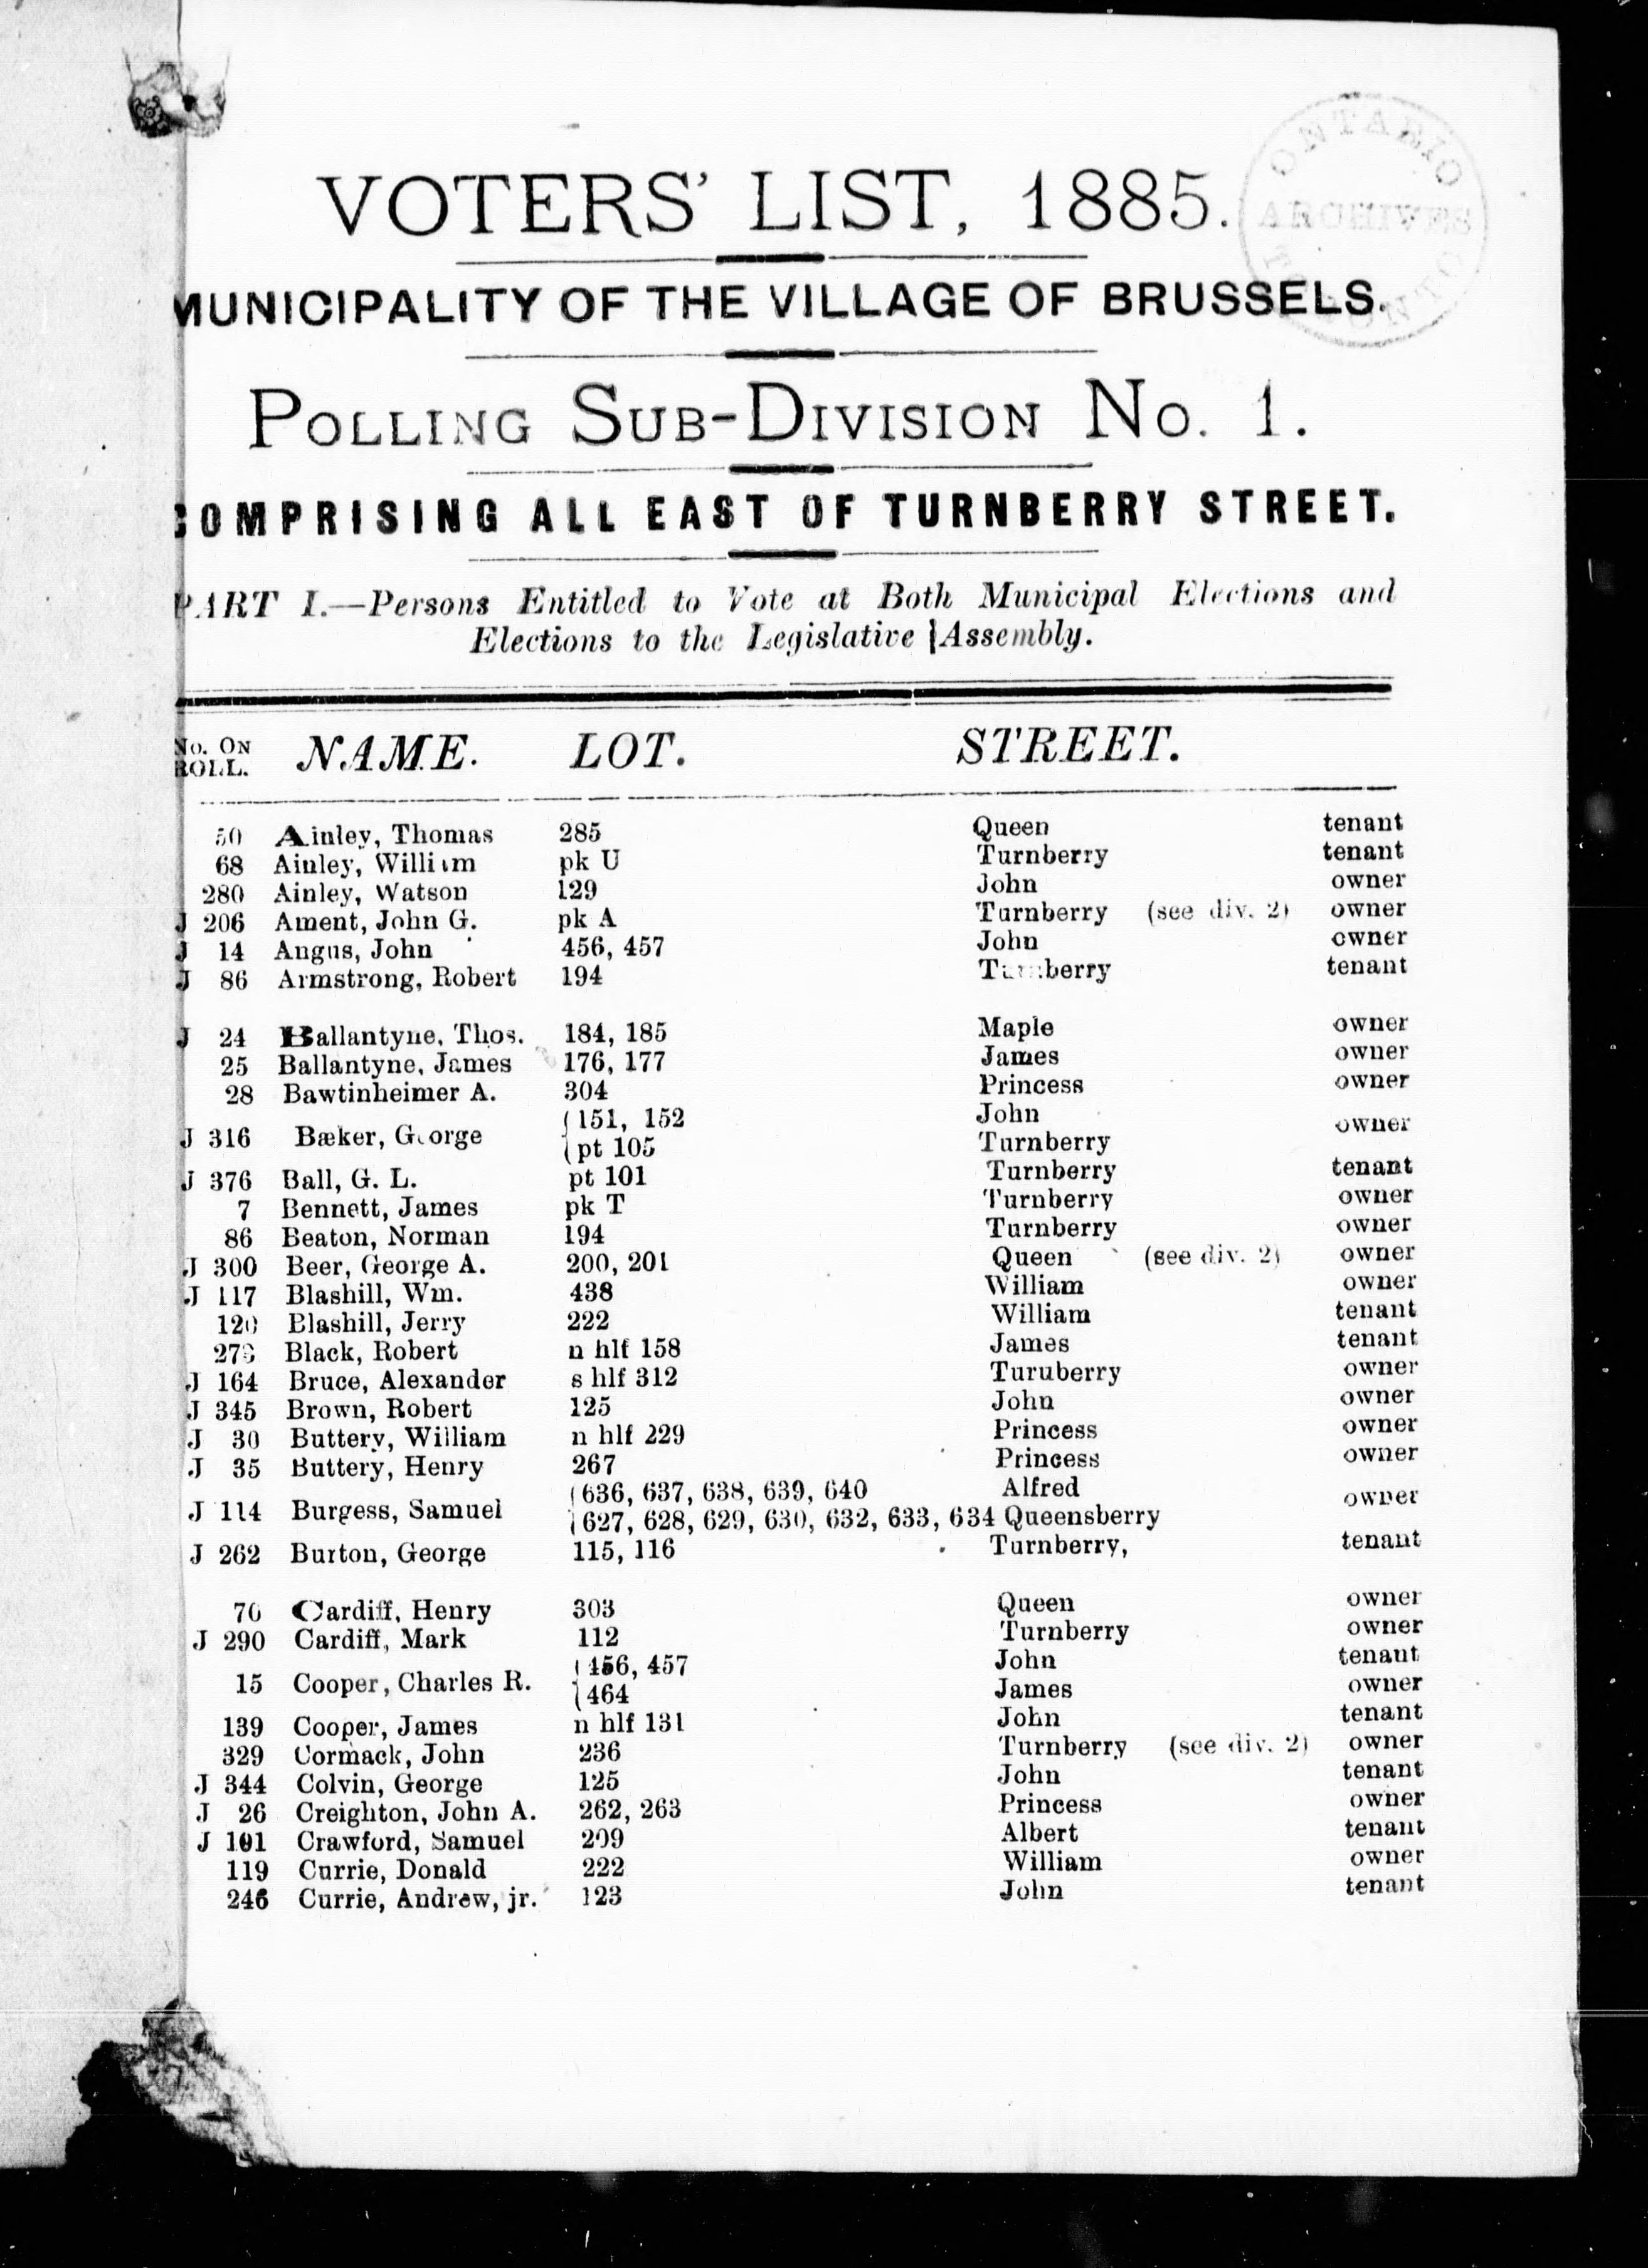 ONTARIO
ARCHIVES
TORONTO
VOTERS' LIST, 1885.
MUNICIPALITY OF THE VILLAGE OF BRUSSELS.
POLLING SUB-DIVISION NO. 1.
COMPRISING ALL EAST OF TURNBERRY STREET.
PART I.—Persons Entitled to Vote at Both Municipal Elections and
Elections to the Legislative Assembly.
NO. ON ROLL. NAME. LOT. STREET.
50 Ainley, Thomas 285 Queen tenant
68 Ainley, William pk U Turnberry tenant
280 Ainley, Watson 129 John owner
J 206 Ament, John G. pk A Turnberry (see div. 2) owner
J 14 Angus, John 456, 457 John owner
J 86 Armstrong, Robert 194 Turnberry tenant
J 24 Ballantyne, Thos. 184, 185 Maple owner
25 Ballantyne, James 176, 177 James owner
28 Bawtinheimer A. 304 Princess owner
J 316 Bæker, George {151, 152 John owner
{pt 105 Turnberry
J 376 Ball, G. L. pt 101 Turnberry tenant
7 Bennett, James pk T Turnberry owner
86 Beaton, Norman 194 Turnberry owner
J 300 Beer, George A. 200, 201 Queen (see div. 2) owner
J 117 Blashill, Wm. 438 William owner
120 Blashill, Jerry 222 William tenant
Black, Robert n hlf 158 James tenant
J 164 Bruce, Alexander s hlf 312 Turuberry owner
J 345 Brown, Robert 125 John owner
J 30 Buttery, William n hlf 229 Princess owner
J 35 Buttery, Henry 267 Princess owner
J 114 Burgess, Samuel {636, 637, 638, 639, 640 Alfred owner
{627, 628, 629, 630, 632, 633, 634 Queensberry
J 262 Burton, George 115, 116 Turnberry, tenant
70 Cardiff, Henry 303 Queen owner
J 290 Cardiff, Mark 112 Turnberry owner
15 Cooper, Charles R. {456, 457 John tenant
{464 James owner
139 Cooper, James n hlf 131 John tenant
329 Cormack, John 236 Turnberry (see div. 2) owner
J 344 Colvin, George 125 John tenant
J 26 Creighton, John A. 262, 263 Princess owner
J 101 Crawford, Samuel 209 Albert tenant
119 Currie, Donald 222 William owner
246 Currie, Andrew, jr. 123 John tenant